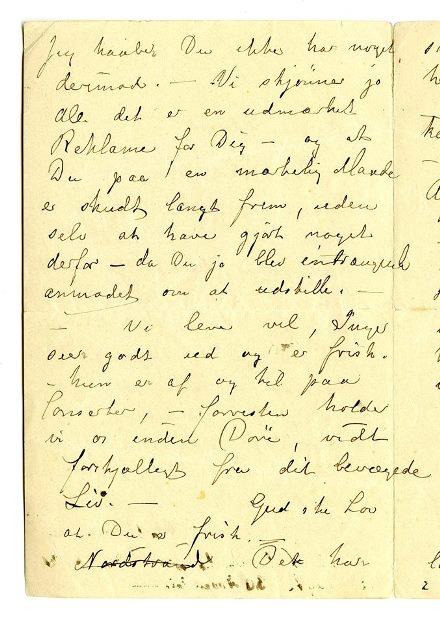 Jeg haaber Du ikke har noget
derimod. — Vi skjønner jo
alle det er en udmærket
Reklame for Dig — og at
Du paa en mærkelig Maade
er skudt langt frem, uden
selv at have gjørt noget
derfor — da Du jo blev indtrængende
anmodet om at udstille. —
— Vi leve vel, Inger
seer godt ud og er frisk.
— hun er af og til paa
Conserter, — forresten holde
vi os inden Døre, vidt
forskjelligt fra dit bevægede
Liv. — Gud ske Lov
at Du er frisk. —
Nordstrand Det har